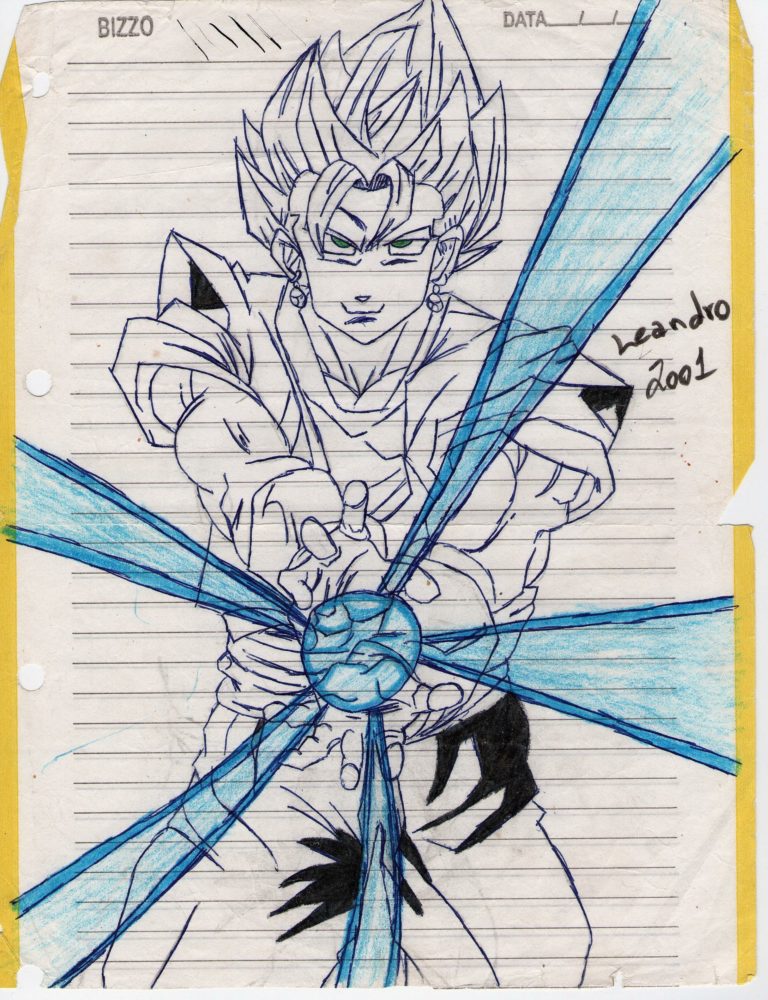 BIZZO
DATA__/__/__
Leandro
2001